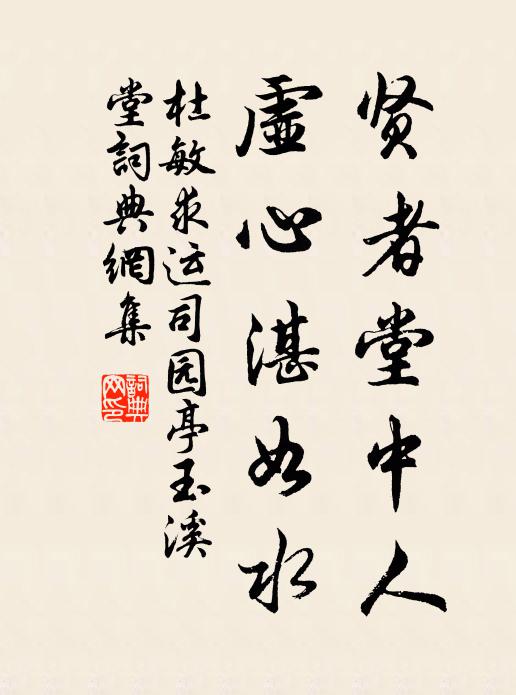 贤者堂中人
虚心湛如水
杜敏求运司园亭玉溪
堂詞典網集
詞典
网印